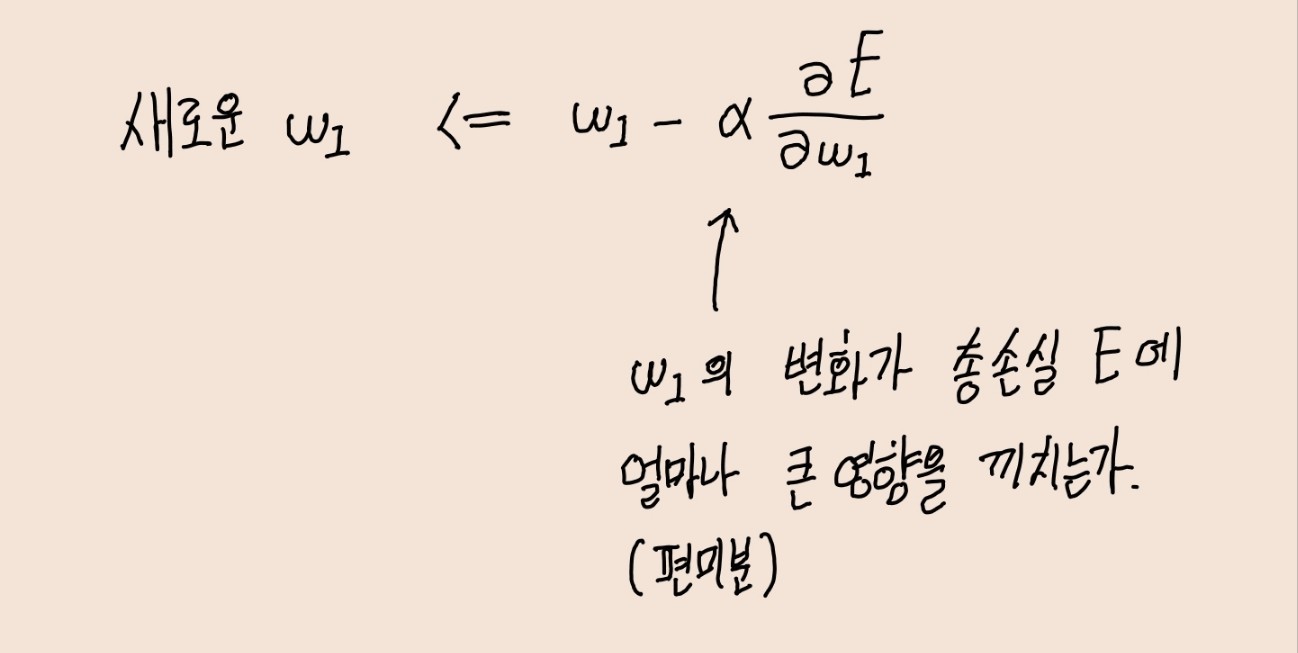 새로운 w₁ <= w₁ - α ∂E/∂w₁
w₁의 변화가 총손실 E에
얼마나 큰 영향을 끼치는가.
(편미분)